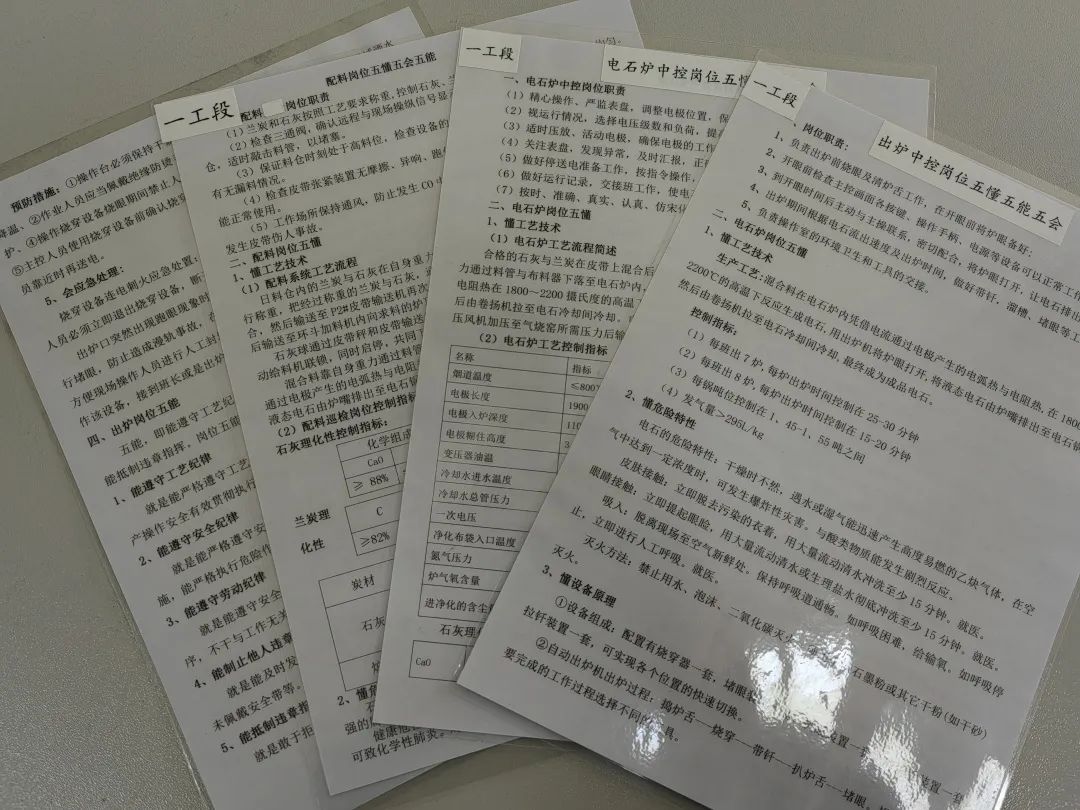 预防措施：①操作台必须保持干
②作业人员应当佩戴绝缘防镜
护、④操作烧穿设备烧眼期间禁止人
⑤主控人员使用烧穿设备前确认烧穿
员靠近时再送电。
5、会应急处理：
烧穿设备连电刺火应急处置，
人员必须立即退出烧穿设备，断
出炉口突然出现跑眼现象时
行堵眼，防止造成漫轨事故，在
方便现场操作人员进行人工封
作该设备，接到班长或能出炉
四、出炉岗位五能
五能，即能遵守工艺纪
能抵制违章指挥。岗位五能
1、能遵守工艺纪律
就是能严格遵守工艺
产操作安全有效贯彻执行
2、能遵守安全纪律
就是能严格遵守安
施，能严格执行危险作
3、能遵守劳动纪律
就是能遵守安全
序，不干与工作无关
4、能制止他人违章
就是能及时发
未佩戴安全带等。
5、能抵制违章指
就是敢于拒
一工段
配料岗位五懂五会五能
配料 岗位职责
（1）兰炭和石灰按照工艺要求称重，控制石灰、
（2）检查三通阀，确认远程与现场操纵信号显
仓，适时敲击料管，以堵塞。
（3）保证料仓时刻处于高料位，检查设备的
有无漏料情况。
（4）检查皮带张紧装置无摩擦、异响、跑
能正常使用。
（5）工作场所保持通风，防止发生CO中
发生皮带伤人事故。
二、配料岗位五懂
1、懂工艺技术
（1）配料系统工艺流程
日料仓内的兰炭与石灰在自身重力
行称重，把经过称重的兰炭与石灰，
合，然后输送至P2#皮带输送机再次
后输送至环斗加料机内问求料的炉
石灰球通过皮带秤和皮带输送
动给料机联锁，同时启停，共同
混合料靠自身重力通过料管
通过电极产生的电弧热与电阻
液态电石由炉嘴排出至电石锅
（2）配料巡检岗位控制指标
石灰理化性控制指标：
化学组成
CaO
≥ 88%
兰炭理
化性
C
≥82%
炭材
石灰
2、懂危
强的
健康危
可致化学性肺炎。
一工段
电石炉中控岗位五懂
一、电石炉中控岗位职责
（1）精心操作、严监表盘，调整电极位置，保
（2）视运行情况，选择电压级数和负荷，提高
（3）适时压放、活动电极、确保电极的工作
（4）关注表盘，发现异常，及时汇报，正确
（5）做好停送电准备工作，按指令操作，
（6）做好运行记录，交接班工作，使电
（7）按时、准确、真实、认真、仿宋体
二、电石炉岗位五懂
1、懂工艺技术
（1）电石炉工艺流程简述
合格的石灰与兰炭在皮带上混合后
力通过料管与布料器下落至电石炉内，
电阻热在1800～2200摄氏度的高温下
后由卷扬机拉至电石冷却间冷却。
压风机加压至气烧窑所需压力后输
（2）电石炉工艺控制指标
名称 指标
烟道温度 ≤800
电极长度 1900
电极入炉深度 110
电极糊住高度 3
变压器油温
冷却水进水温度
冷却水总管压力
一次电压
净化布袋入口温度
氮气压力
炉气氧含量
进净化的含尘
石灰理
CaO
一工段
出炉中控岗位五懂五能五会
、岗位职责：
1、负责出炉前烧眼及清炉舌工作，在开眼前将炉眼备好；
2、开眼前检查主控画面各按键、操作手柄、电源等设备可以正常工作
3、到开眼时间后主动与主操联系，密切配合，将炉眼打开，让电石排出
4、出炉期间根据电石流出速度及出炉时间，做好带钎，溜槽，堵眼等工
5、负责操作室的环境卫生和工具的交接。
二、电石炉岗位五懂
1、懂工艺技术
生产工艺：混合料在电石炉内凭借电流通过电极产生的电弧热与电阻热，在1800
2200℃的高温下反应生成电石，用出炉机将炉眼打开，将液态电石由炉嘴排出至电石锅
然后由卷扬机拉至电石冷却间冷却，最终成为成品电石。
控制指标：
（1）每班出7炉，每炉出炉时间控制在25-30分钟
（2）每班出8炉，每炉出炉时间控制在15-20分钟
（3）每锅吨位控制在1、45-1、55吨之间
（4）发气量＞295L/kg
2、懂危险特性
电石的危险特性：干燥时不然，遇水或湿气能迅速产生高度易燃的乙炔气体，在空
气中达到一定浓度时，可发生爆炸性灾害。与酸类物质能发生剧烈反应。
皮肤接触：立即脱去污染的衣着，用大量流动清水冲洗至少15分钟。就医。
眼睛接触：立即提起眼睑，用大量流动清水或生理盐水彻底冲洗至少15分钟。就医。
吸入：脱离现场至空气新鲜处。保持呼吸道通畅。如呼吸困难，给输氧。如呼吸停
止，立即进行人工呼吸。就医。
灭火方法：禁止用水、泡沫、二氧化碳灭 石墨粉或其它干粉（如干砂）
灭火。
3、懂设备原理
①设备组成：配置有烧穿器一套，堵眼 装置一套 装置一套
拉钎装置一套，可实现各个位置的快速切换。
②自动出炉机出炉过程：捣炉舌---烧穿---带钎---扒炉舌---堵眼。
要完成的工作过程选择不同的 具。